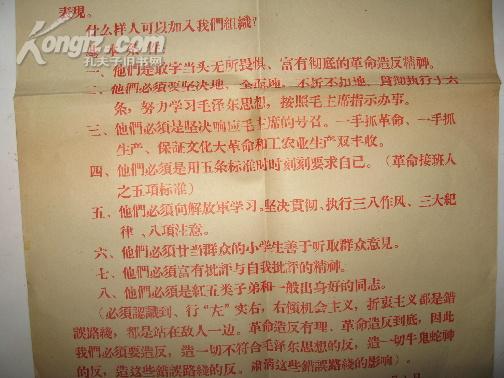 表現。
什么样人可以加入我們組織?
基本条件:
一、他們是敢字当头无所畏惧、富有彻底的革命造反精神。
二、他們必須要坚决地、全面地、不折不扣地、貫彻执行十六
条,努力学习毛泽东思想,按照毛主席指示办事。
三、他們必須是坚决响应毛主席的号召。一手抓革命、一手抓
生产、保証文化大革命和工农业生产双丰收。
四、他們必須是用五条标准时时刻刻要求自己。(革命接班人
之五項标准)
五、他們必須向解放軍学习。坚决貫彻、执行三八作风、三大紀
律、八項注意。
六、他們必須甘当群众的小学生善于听取群众意見。
七、他們必須富有批評与自我批評的精神。
八、他們必須是紅五类子弟和一般出身好的同志。
(必須認識到、行"左"实右,右傾机会主义,折衷主义都是錯
誤路綫,都是站在敌人一边。革命造反有理、革命造反到底,因此
我們必須要造反,造一切不符合毛泽东思想的反,造一切牛鬼蛇神
的反,造这些錯誤路綫的反。肅清这些錯誤路綫的影响)。
Kongfz.com
孔夫子旧书网